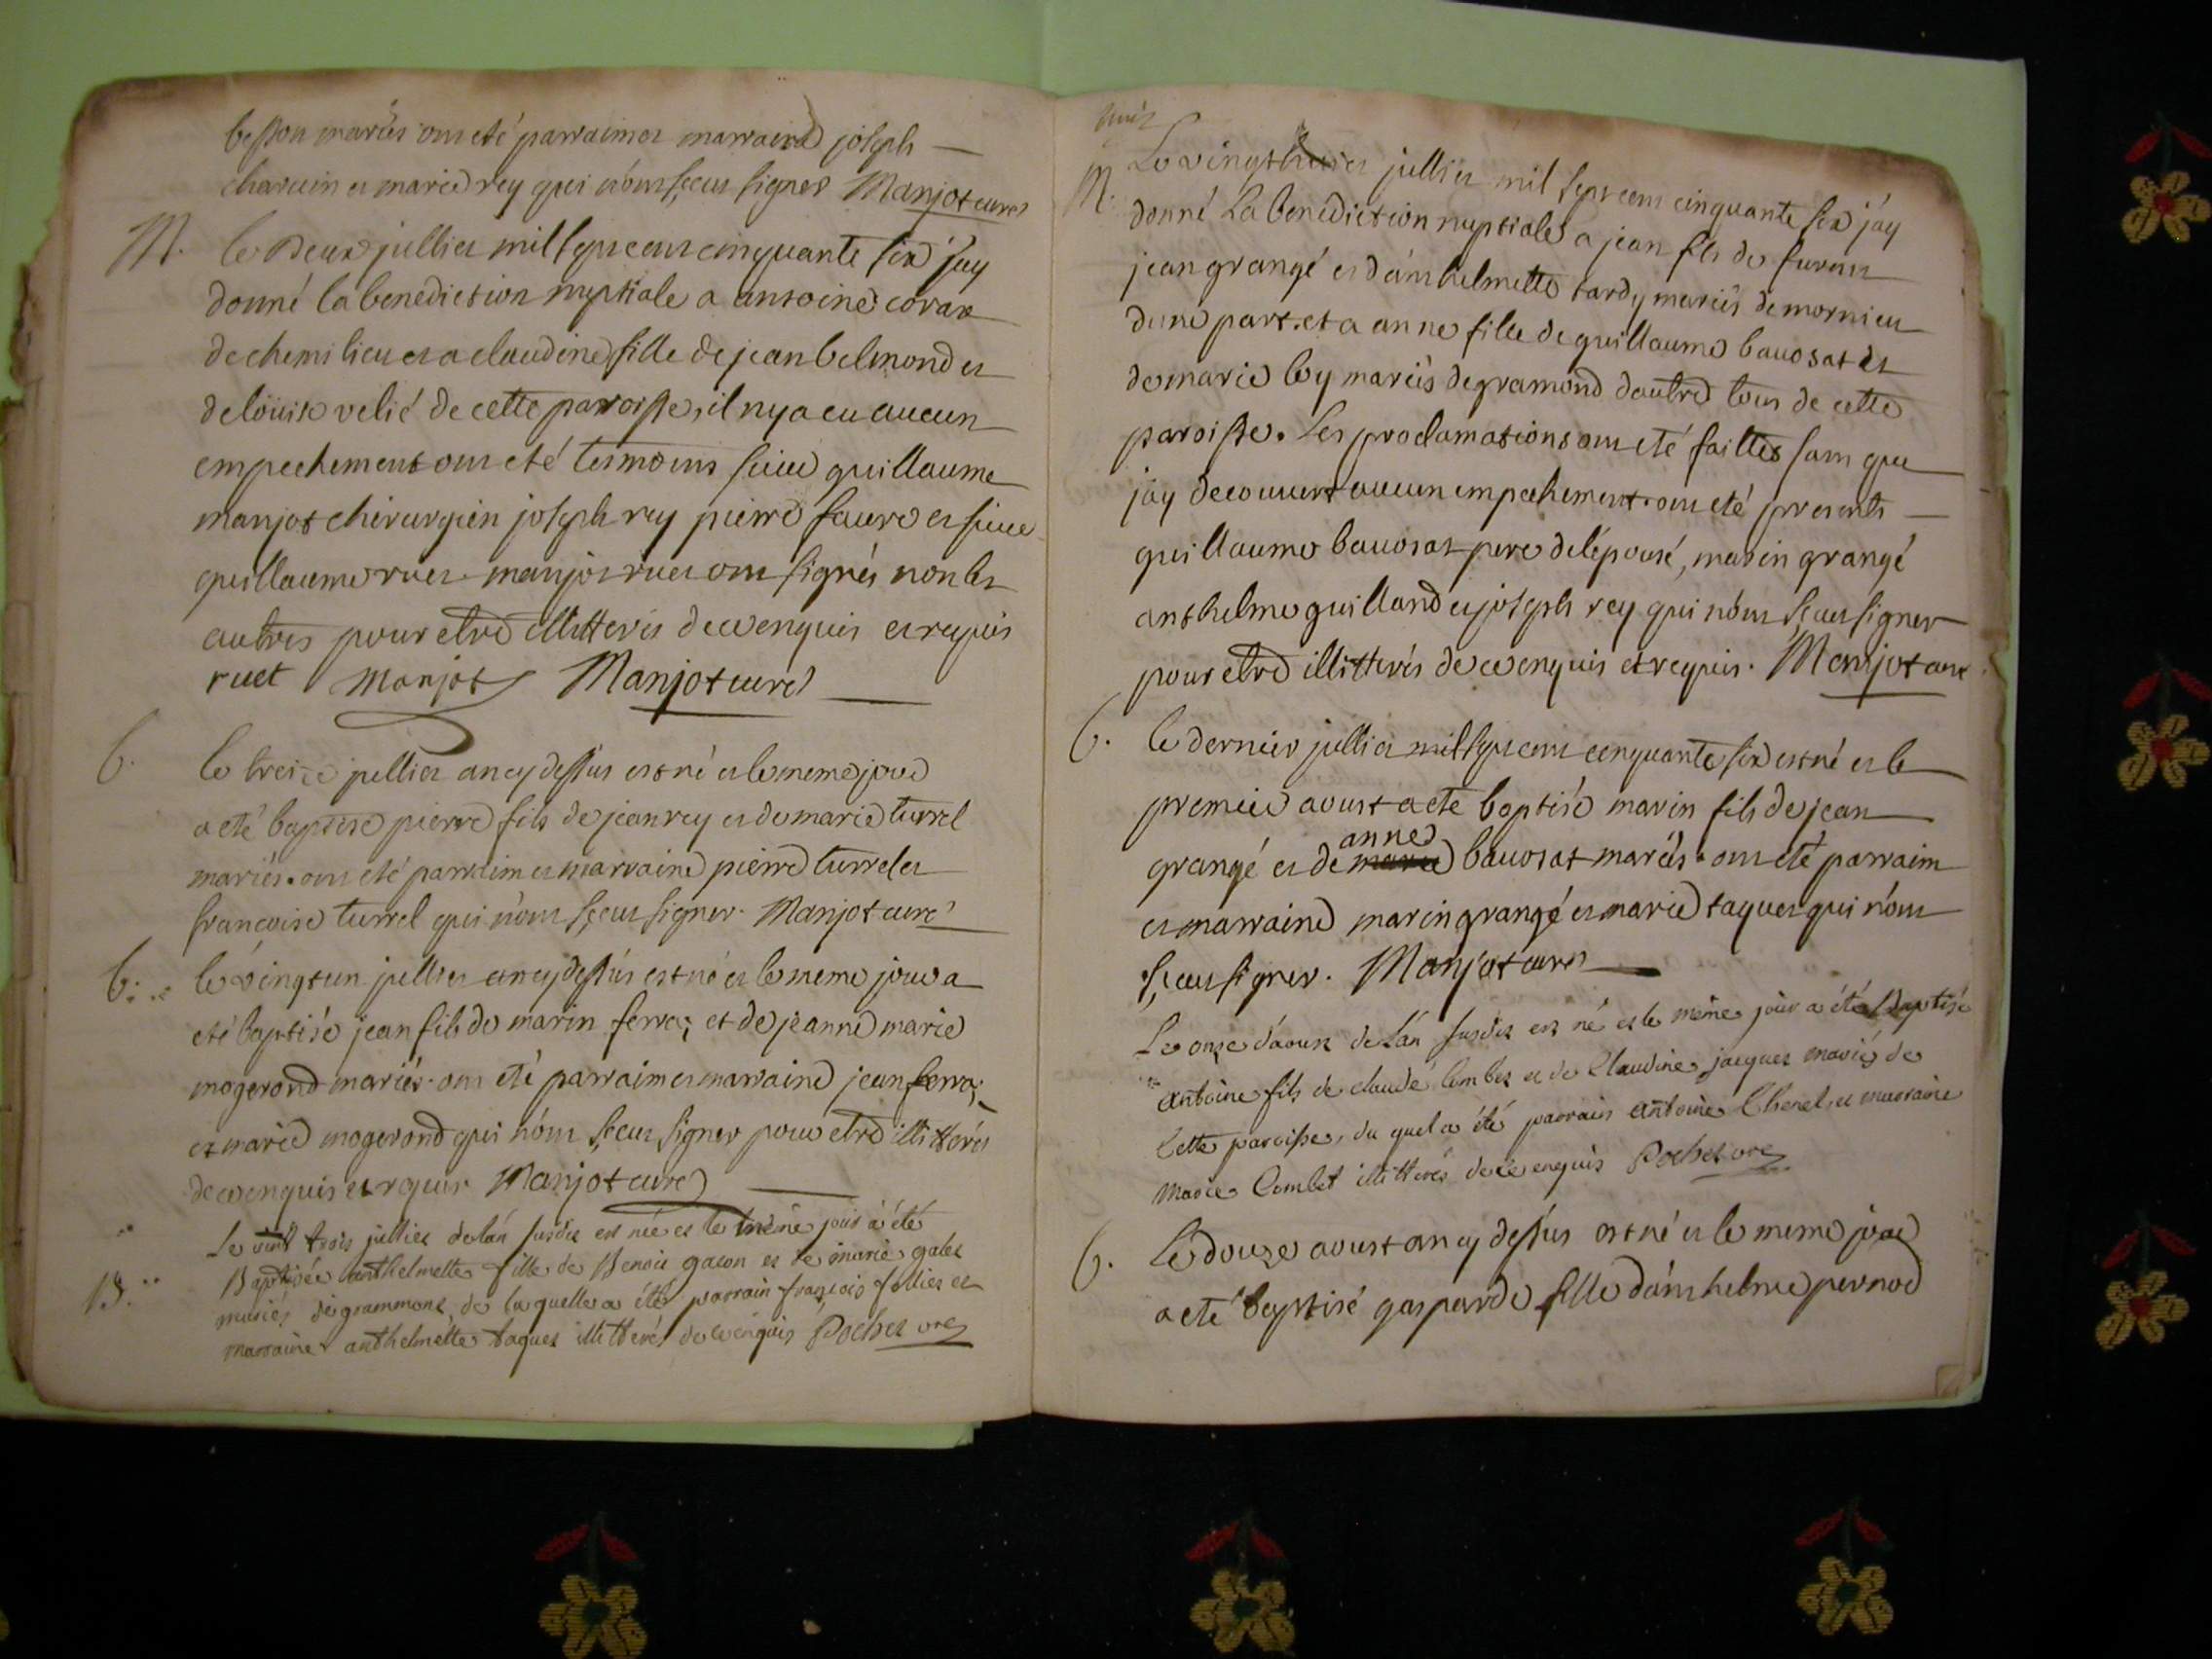 besson mariés ont eté parraim et marraine joseph
charuin et marie rey qui n'ont sçeu signer Manjot curé
M. le deux jullier mil sept cens cinquante six j'ay
donné la benediction nuptiale a antoine corax
de chemilieu et a claudine fille de jean belmond et
de loüise velié de cette parroisse, il ny a eu aucun
empechement ont eté tesmoins sieur guillaume
manjot chirurgien joseph rey pierre faure et sieur
guillaume ruet. manjot ruet ont signés non les
autres pour etre illitterés de ce enquis et requis
ruet Manjot Manjot curé
b. le treize jullier an cy dessus est né et le meme jour
a eté baptisé pierre fils de jean rey et de marie turrel
mariés. ont eté parraim et marraine pierre turrel et
francoise turrel qui n'ont sçeu signer. Manjot curé
b. le vingt un jullier an cy dessus est né et le meme jour a
eté baptisé jean fils de marin ferraz et de jeanne marie
mogerond mariés. ont eté parraim et marraine jean ferraz
et marie mogerond qui n'ont sçeu signer pour etre illitterés
de ce enquis et requis Manjot curé
Le vint trois jullier de l'an susdit est née et le même jour a été
B. Baptisée anthelmette fille de Benoit gacon et de marie galet
mariés de grammont, de laquelle a été parrain françois follier et
marraine anthelmette taquet illitterés de ce enquis Pochet vre
M. Le vingt jullier mil sept cens cinquante six j'ay
donné La benediction nuptiale a jean fils de furent
jean grangé et d'anthelmette tardy mariés de mornieu
dune part. et a anne fille de guillaume bauosat et
de marie loy mariés de gramond dautre tous de cette
paroisse. Les proclamations ont eté faittes sans que
j'ay decouvert aucun empechement. ont eté presents
guillaume bauosat pere de l'épouse, marin grangé
anthelme guilland et joseph rey qui n'ont sçeu signer
pour etre illitterés de ce enquis et requis. Manjot curé
b. le dernier jullier mil sept cens cinquante six est né et le
premier aoust a eté baptisé marin fils de jean
anne
grangé et de marie bauosat mariés. ont eté parraim
et marraine marin grangé et marie taquet qui n'ont
sçeu signer. Manjot curé
Le onze d'aoust de l'an susdit est né et le même jour a été Baptisé
antoine fils de claude Combet et de Claudine jacquet mariés de
Cette paroisse, du quel a été parrain antoine Chenel et marraine
marie Combet illitterés de ce enquis Pochet vre
b. Le douze aoust an cy dessus est né et le meme jour
a eté baptisé gasparde fille d'anthelme pernod